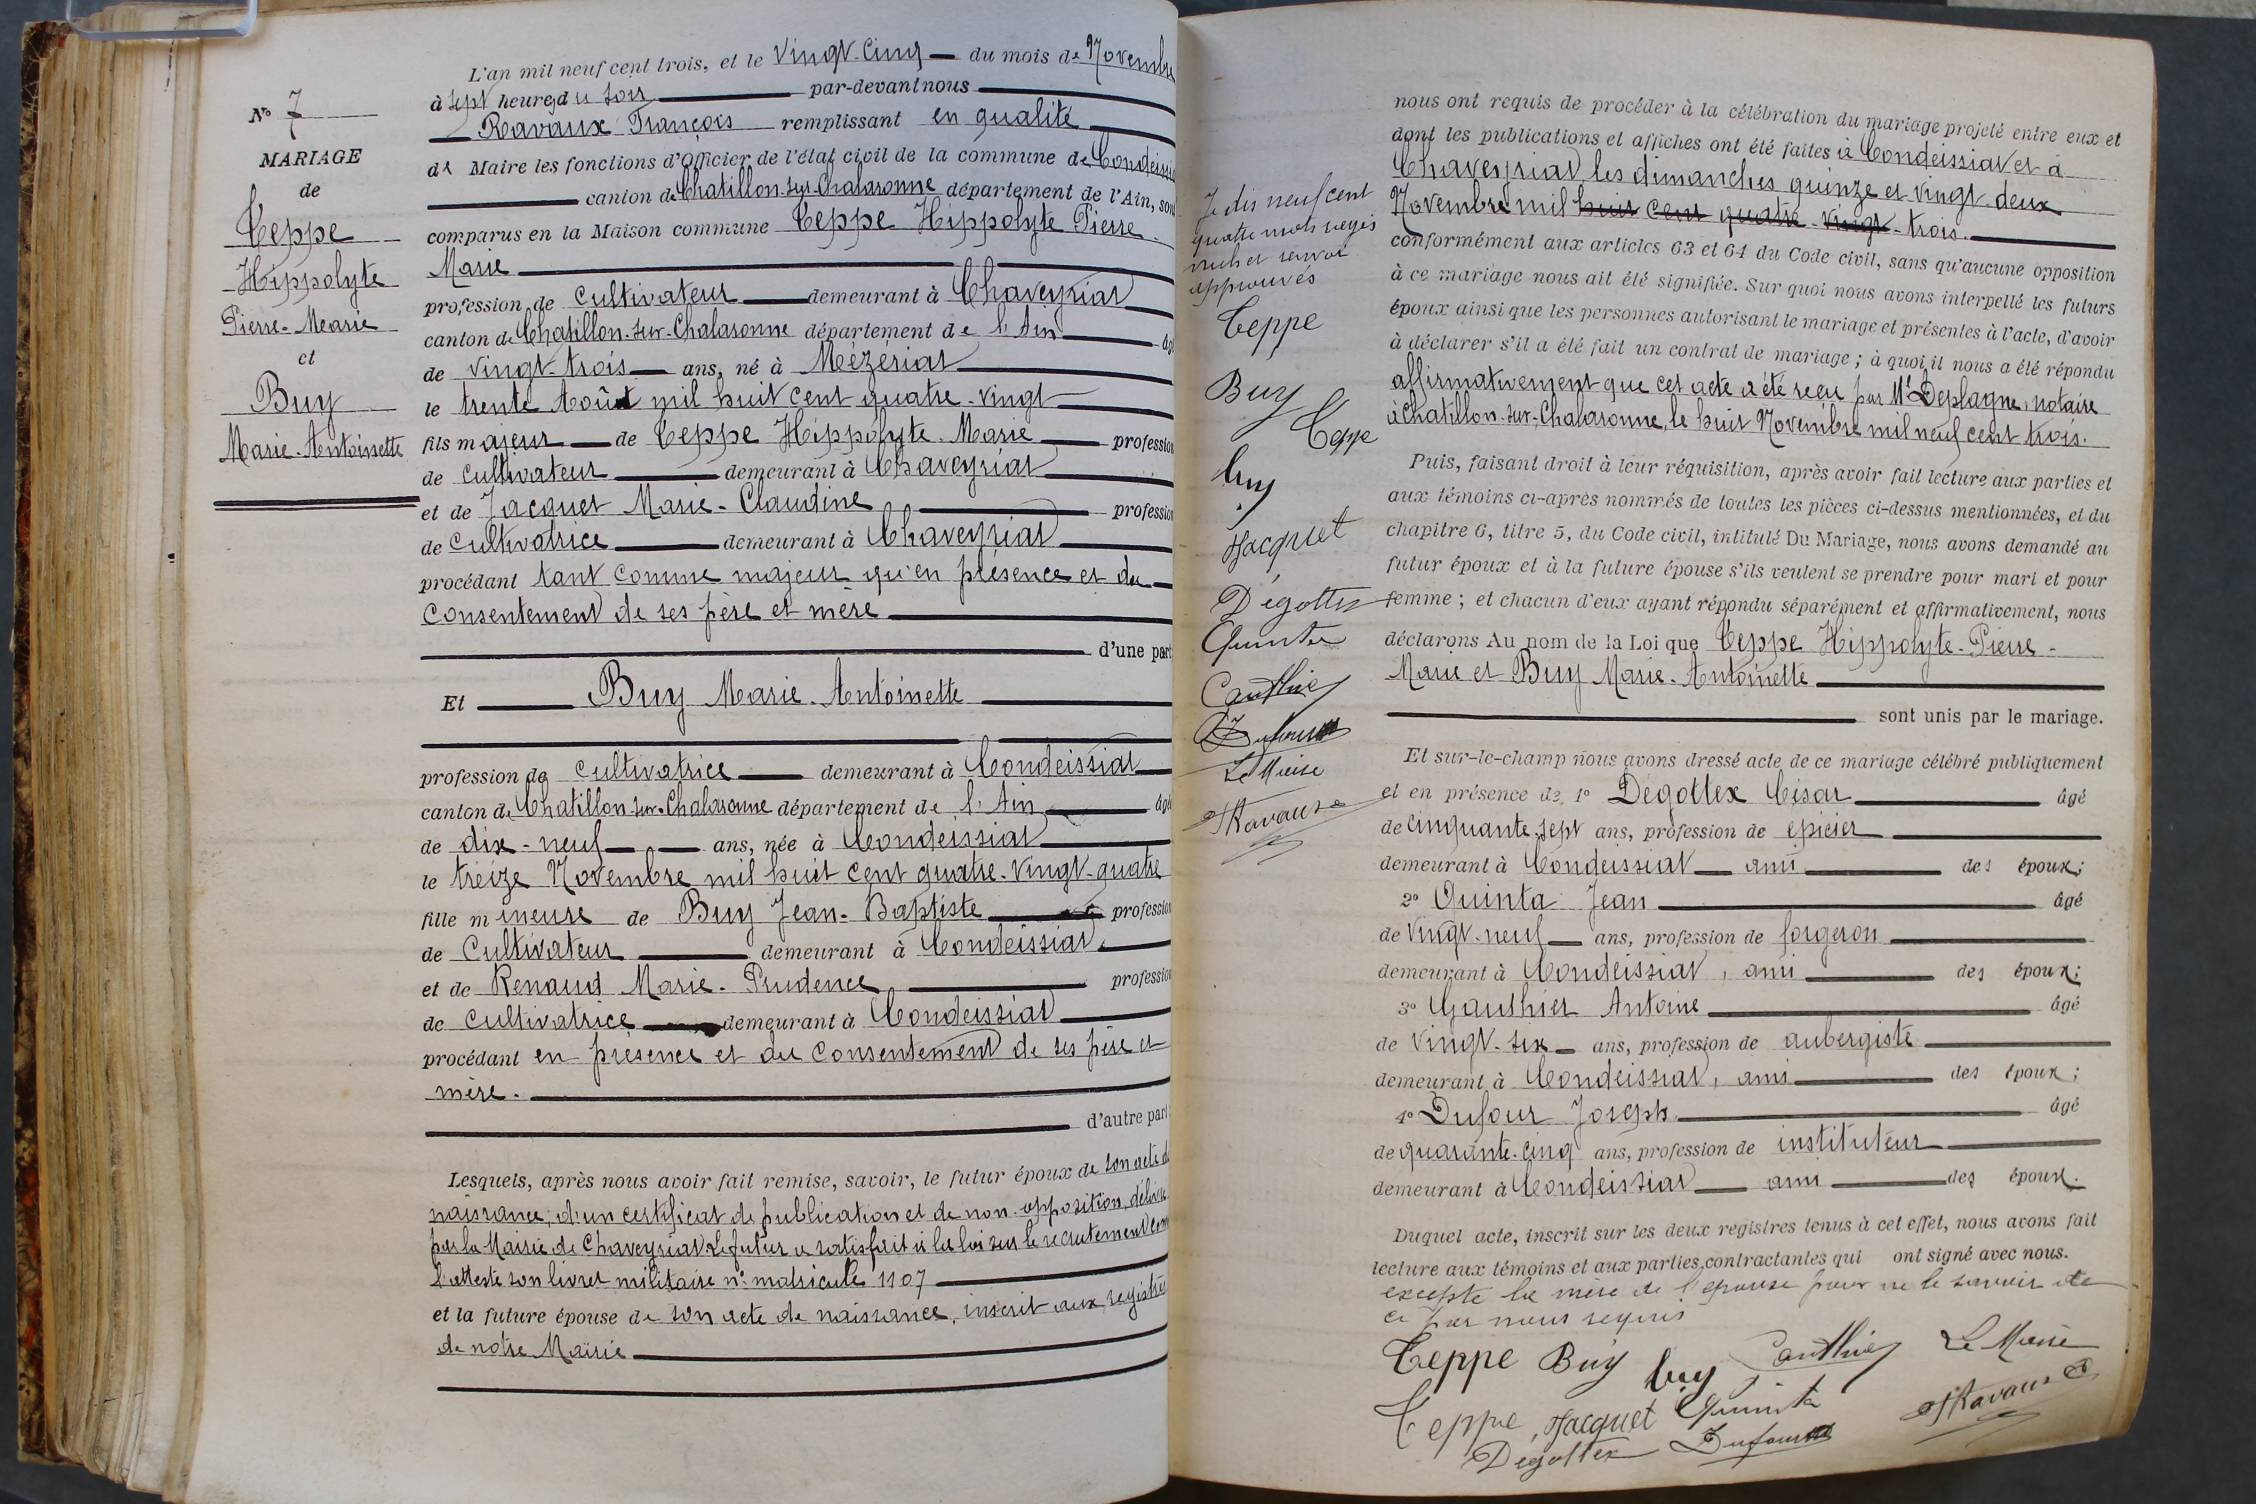 N° 7
MARIAGE
de
Teppe
Hippolyte
Pierre-Marie
et
Buy
Marie-Antoinette
L'an mil neuf cent trois, et le vingt-cinq du mois de Novembre
à sept heures du soir par-devant nous
Ravaux François remplissant en qualité
de Maire les fonctions d'Officier de l'état civil de la commune de Condeissiat
canton de Chatillon-sur-Chalaronne département de l'Ain, sont
comparus en la Maison commune Teppe Hippolyte Pierre
Marie
profession de cultivateur demeurant à Chaveyriat
canton de Chatillon-sur-Chalaronne département de l'Ain âgé
de vingt-trois ans, né à Mézériat
le trente Août mil huit cent quatre-vingt
fils majeur de Teppe Hippolyte-Marie profession
de cultivateur demeurant à Chaveyriat
et de Jacquet Marie-Claudine profession
de cultivatrice demeurant à Chaveyriat
procédant tant comme majeur qu'en présence et du
consentement de ses père et mère
d'une part
Et Buy Marie-Antoinette
profession de cultivatrice demeurant à Condeissiat
canton de Chatillon-sur-Chalaronne département de l'Ain âgée
de dix-neuf ans, née à Condeissiat
le treize Novembre mil huit cent quatre-vingt-quatre
fille mineure de Buy Jean-Baptiste profession
de Cultivateur demeurant à Condeissiat
et de Renaud Marie-Prudence profession
de cultivatrice demeurant à Condeissiat
procédant en présence et du consentement de ses père et
mère.
d'autre part
Lesquels, après nous avoir fait remise, savoir, le futur époux de son acte de
naissance, d'un certificat de publication et de non-opposition, délivré
par la Mairie de Chaveyriat. Le futur a satisfait à la loi sur le recrutement comme
l'atteste son livret militaire n° matricule 1107
et la future épouse de son acte de naissance, inscrit aux registres
de notre Mairie
nous ont requis de procéder à la célébration du mariage projeté entre eux et
dont les publications et affiches ont été faites à Condeissiat et à
Chaveyriat les dimanches quinze et vingt-deux
Novembre mil huit cent quatre-vingt-trois.
conformément aux articles 63 et 64 du Code civil, sans qu'aucune opposition
à ce mariage nous ait été signifiée. Sur quoi nous avons interpellé les futurs
époux ainsi que les personnes autorisant le mariage et présentes à l'acte, d'avoir
à déclarer s'il a été fait un contrat de mariage ; à quoi il nous a été répondu
affirmativement que cet acte a été reçu par Me Deplagne, notaire
à Chatillon-sur-Chalaronne, le huit Novembre mil neuf cent trois.
Puis, faisant droit à leur réquisition, après avoir fait lecture aux parties et
aux témoins ci-après nommés de toutes les pièces ci-dessus mentionnées, et du
chapitre 6, titre 5, du Code civil, intitulé Du Mariage, nous avons demandé au
futur époux et à la future épouse s'ils veulent se prendre pour mari et pour
femme ; et chacun d'eux ayant répondu séparément et affirmativement, nous
déclarons Au nom de la Loi que Teppe Hippolyte-Pierre-
Marie et Buy Marie-Antoinette
sont unis par le mariage.
Et sur-le-champ nous avons dressé acte de ce mariage célébré publiquement
et en présence de 1° Dégottex César âgé
de cinquante-sept ans, profession de épicier
demeurant à Condeissiat ami des époux ;
2° Quinta Jean âgé
de vingt-neuf ans, profession de forgeron
demeurant à Condeissiat, ami des époux ;
3° Gauthier Antoine âgé
de vingt-six ans, profession de aubergiste
demeurant à Condeissiat, ami des époux ;
4° Dufour Joseph âgé
de quarante-cinq ans, profession de instituteur
demeurant à Condeissiat ami des époux.
Duquel acte, inscrit sur les deux registres tenus à cet effet, nous avons fait
lecture aux témoins et aux parties contractantes qui ont signé avec nous.
excepté la mère de l'épouse pour ne le savoir de
ce par nous requis
Teppe Buy Buy Gauthier Le Maire
Teppe, Jacquet Quinta
Dégottex Dufour Ravaux
Je dis neuf cent
quatre mots rayés
nuls et renvoi
approuvés
Teppe
Buy
Teppe
Buy
Jacquet
Dégottex
Quinta
Gauthier
Dufour
Le Maire
Ravaux